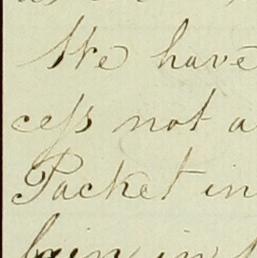 We have
ceſs not a
Packet in